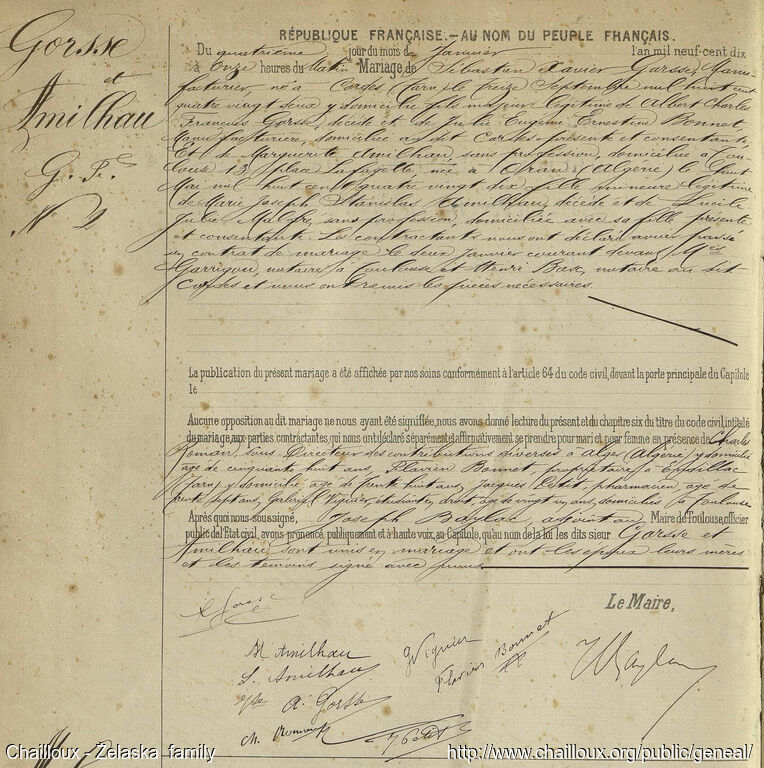 Gorsse
et
Amilhau
G. Fr.
N° 2
RÉPUBLIQUE FRANÇAISE.–AU NOM DU PEUPLE FRANÇAIS.
Du quatrième jour du mois de Janvier l'an mil neuf-cent dix
à Onze heures du Matin Mariage de Sébastien Xavier Gorsse, Manu
facturier, né à Cordes (Tarn) le treize Septembre mil huit cent
quatre vingt deux y domicilié fils majeur légitime de Albert Charles
François Gorsse, décédé et de Julie Eugénie Ernestine Bonnet,
Manufacturière, domiciliée audit Cordes présente et consentante
Et de Marguerite Amilhau, sans profession, domiciliée à Tou
louse 13 place Lafayette née à Oran (Algérie) le huit
Mai mil huit cent quatre vingt dix fille mineure légitime
de Marie Joseph Stanislas Amilhau, décédé et de Lucile
Julie sans profession, domiciliée avec sa fille présente
et consentante. Les contractants nous ont déclaré avoir passé
un contrat de mariage le deux janvier courant devant Mes
Garrigou, notaire à Toulouse et Henri Bax, notaire au dit
Cordes et nous ont remis les pièces nécessaires.
La publication du présent mariage a été affichée par nos soins conformément à l'article 64 du code civil, devant la porte principale du Capitole
le
Aucune opposition au dit mariage ne nous ayant été signifiée, nous avons donné lecture du présent et du chapitre six du titre du code civil, intitulé
du mariage aux parties contractantes qui nous ont déclaré séparément et affirmativement se prendre pour mari et pour femme en présence de Charles
Roman, sous Directeur des contributions diverses à Alger (Algérie) y domicilié
âgé de cinquante huit ans, Flavien Bonnet, propriétaire à
(Tarn) y domicilié âgé de trente huit ans, Jacques Petit, pharmacien âgé de
trente sept ans, Viguier, étudiant en droit, âgé de vingt un ans, domiciliés à Toulouse
Après quoi nous soussigné, Joseph Baylac, adjoint au Maire de Toulouse, officier
public de l'Etat civil, avons prononcé, publiquement et à haute voix, au Capitole, qu'au nom de la loi les dits sieur Gorsse et
Amilhau sont unis en mariage et ont les époux leurs mères
et les témoins signé avec nous.
Le Maire,
X Gorsse
M Amilhau
L. Amilhau
A. Gorsse
Ch. Roman
G Viguier
Flavien Bonnet
J Petit
J Baylac
Chailloux - Zelaska family
http://www.chailloux.org/public/geneal/